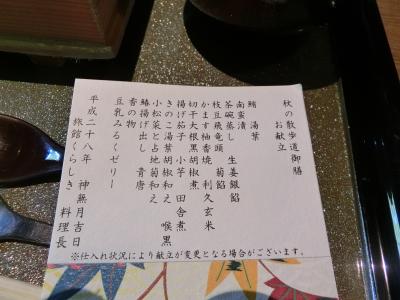 秋の散歩道御膳
お献立
鮪 湯葉
南蛮漬
茶碗蒸し 生姜銀餡
枝豆飛竜頭 菊餡
かます柚香焼 利久玄米
切干大根黒胡椒煮
揚げ茄子 小芋 田舎煮
きのこ湯葉胡椒和え
小松菜と占地菊和え 喉黒
鰆揚げ出し 青唐
香の物
豆乳みるくゼリー
平成二十八年 神無月吉日
旅館くらしき 料理長
※仕入れ状況により献立が変更となる場合がございます。